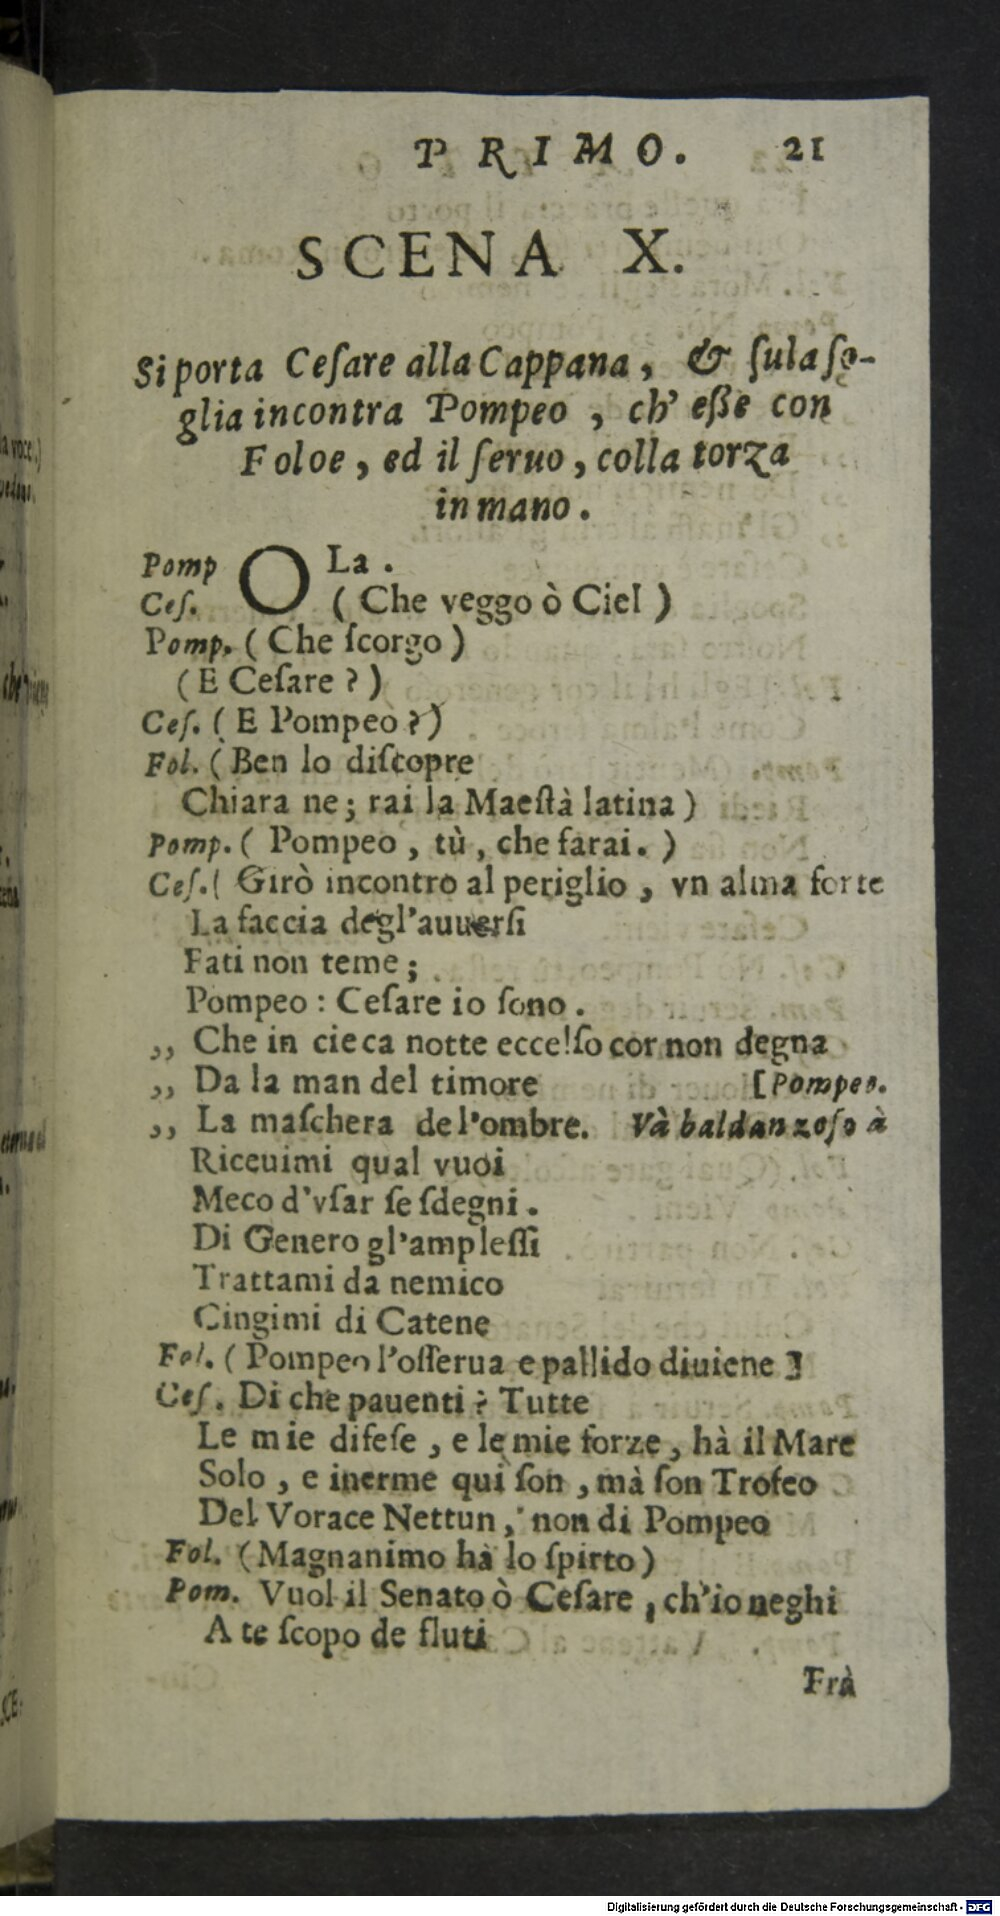 PRIMO. 21
SCENA X.
Si porta Ceſare alla Cappana, & ſula ſo-
glia incontra Pompeo, ch' eſſe con
Foloe, ed il ſeruo, colla torza
in mano.
Pomp OLa.
Ceſ. (Che veggo ò Ciel)
Pomp. (Che ſcorgo)
(E Ceſare?)
Ceſ. (E Pompeo?)
Fol. (Ben lo diſcopre
Chiara ne; rai la Maeſtà latina)
Pomp. (Pompeo, tù, che farai.)
Ceſ. (Girò incontro al periglio, vn alma forte
La faccia degl'auuerſi
Fati non teme;
Pompeo: Ceſare io ſono.
,, Che in cieca notte ecce!ſo cor non degna
,, Da la man del timore [Pompeo.
,, La maſchera de l'ombre. Và baldanzoſo à
Riceuimi qual vuoi
Meco d'vſar ſe ſdegni.
Di Genero gl'ampleſſi
Trattami da nemico
Cingimi di Catene
Fol. (Pompeo l'oſſerua e pallido diuiene]
Ceſ. Di che pauenti? Tutte
Le mie difeſe, e le mie forze, hà il Mare
Solo, e inerme qui ſon, mà ſon Trofeo
Del Vorace Nettun, non di Pompeo
Fol. (Magnanimo hà lo ſpirto)
Pom. Vuol il Senato ò Ceſare, ch'io neghi
A te ſcopo de fluti
Frà
Digitalisierung gefördert durch die Deutsche Forschungsgemeinschaft - DFG